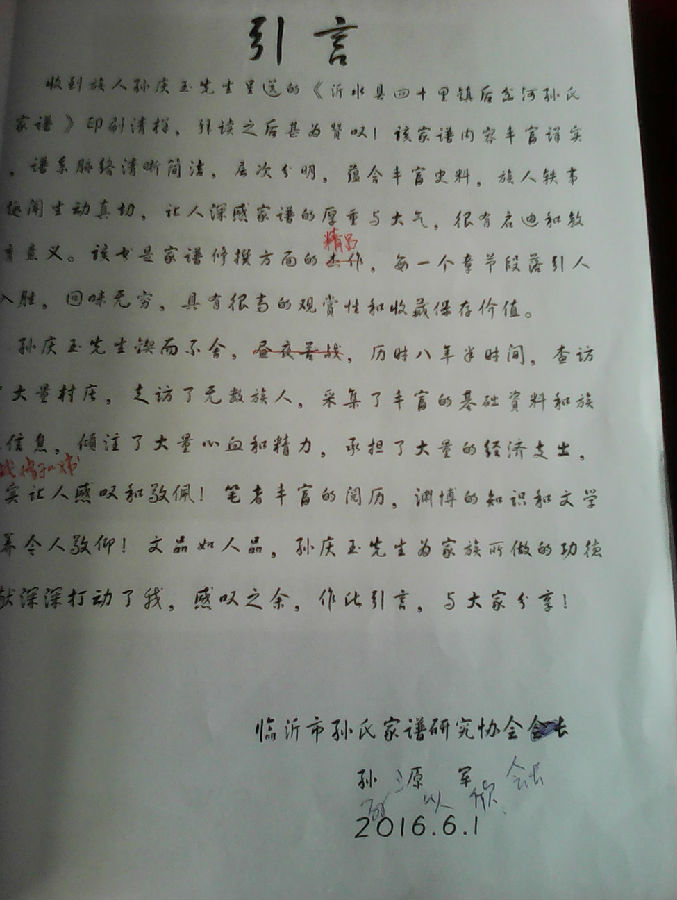 引言
收到族人孙庆玉先生呈送的《沂水县四十里镇后岔河孙氏
家谱》印刷清样，拜读之后甚为赞叹！该家谱内容丰富详实
，谱系脉络清晰简洁，层次分明，蕴含丰富史料，族人轶事
趣闻生动真切，让人深感家谱的厚重与大气，很有启迪和教
育意义。该书是家谱修撰方面的杰作，每一个章节段落引人
精品
入胜，回味无穷，具有很高的观赏性和收藏保存价值。
孙庆玉先生锲而不舍，昼夜苦战，历时八年半时间，查访
大量村庄，走访了无数族人，采集了丰富的基础资料和族
信息，倾注了大量心血和精力，承担了大量的经济支出，
实让人感叹和敬佩！笔者丰富的阅历，渊博的知识和文学
养令人敬仰！文品如人品，孙庆玉先生为家族所做的功德
献深深打动了我，感叹之余，作此引言，与大家分享！
临沂市孙氏家谱研究协会会长
孙源军 会长
2016.6.1